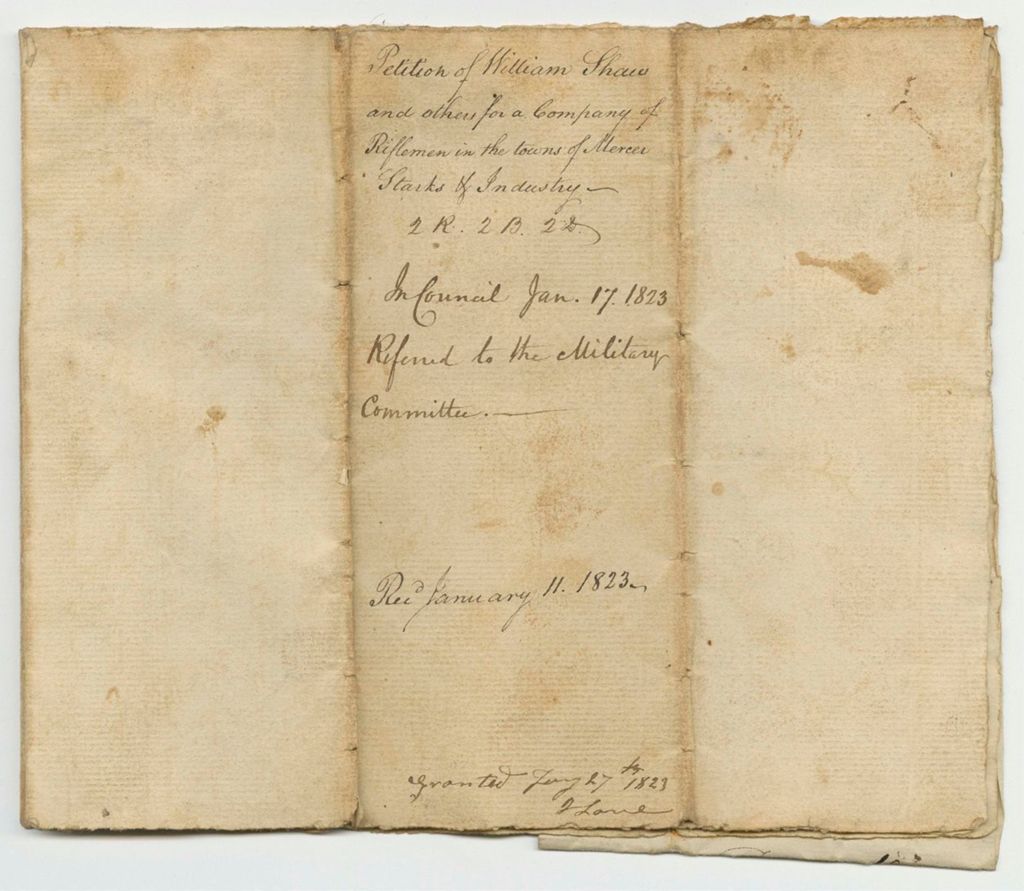 Petition of William Shaw
and others for a Company of
Riflemen in the towns of Mercer
Starks & Industry—
2 R. 2 B. 2 D.
In Council Jan. 17. 1823
Referred to the Military
Committee. —
Recd January 11. 1823.
Granted Jany 27th 1823